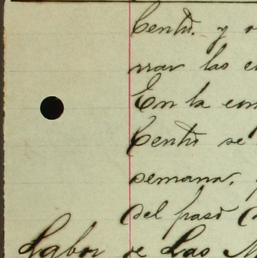 Centro. y
nar las
En la
Centro se
semana.
del paso
Labor de Las